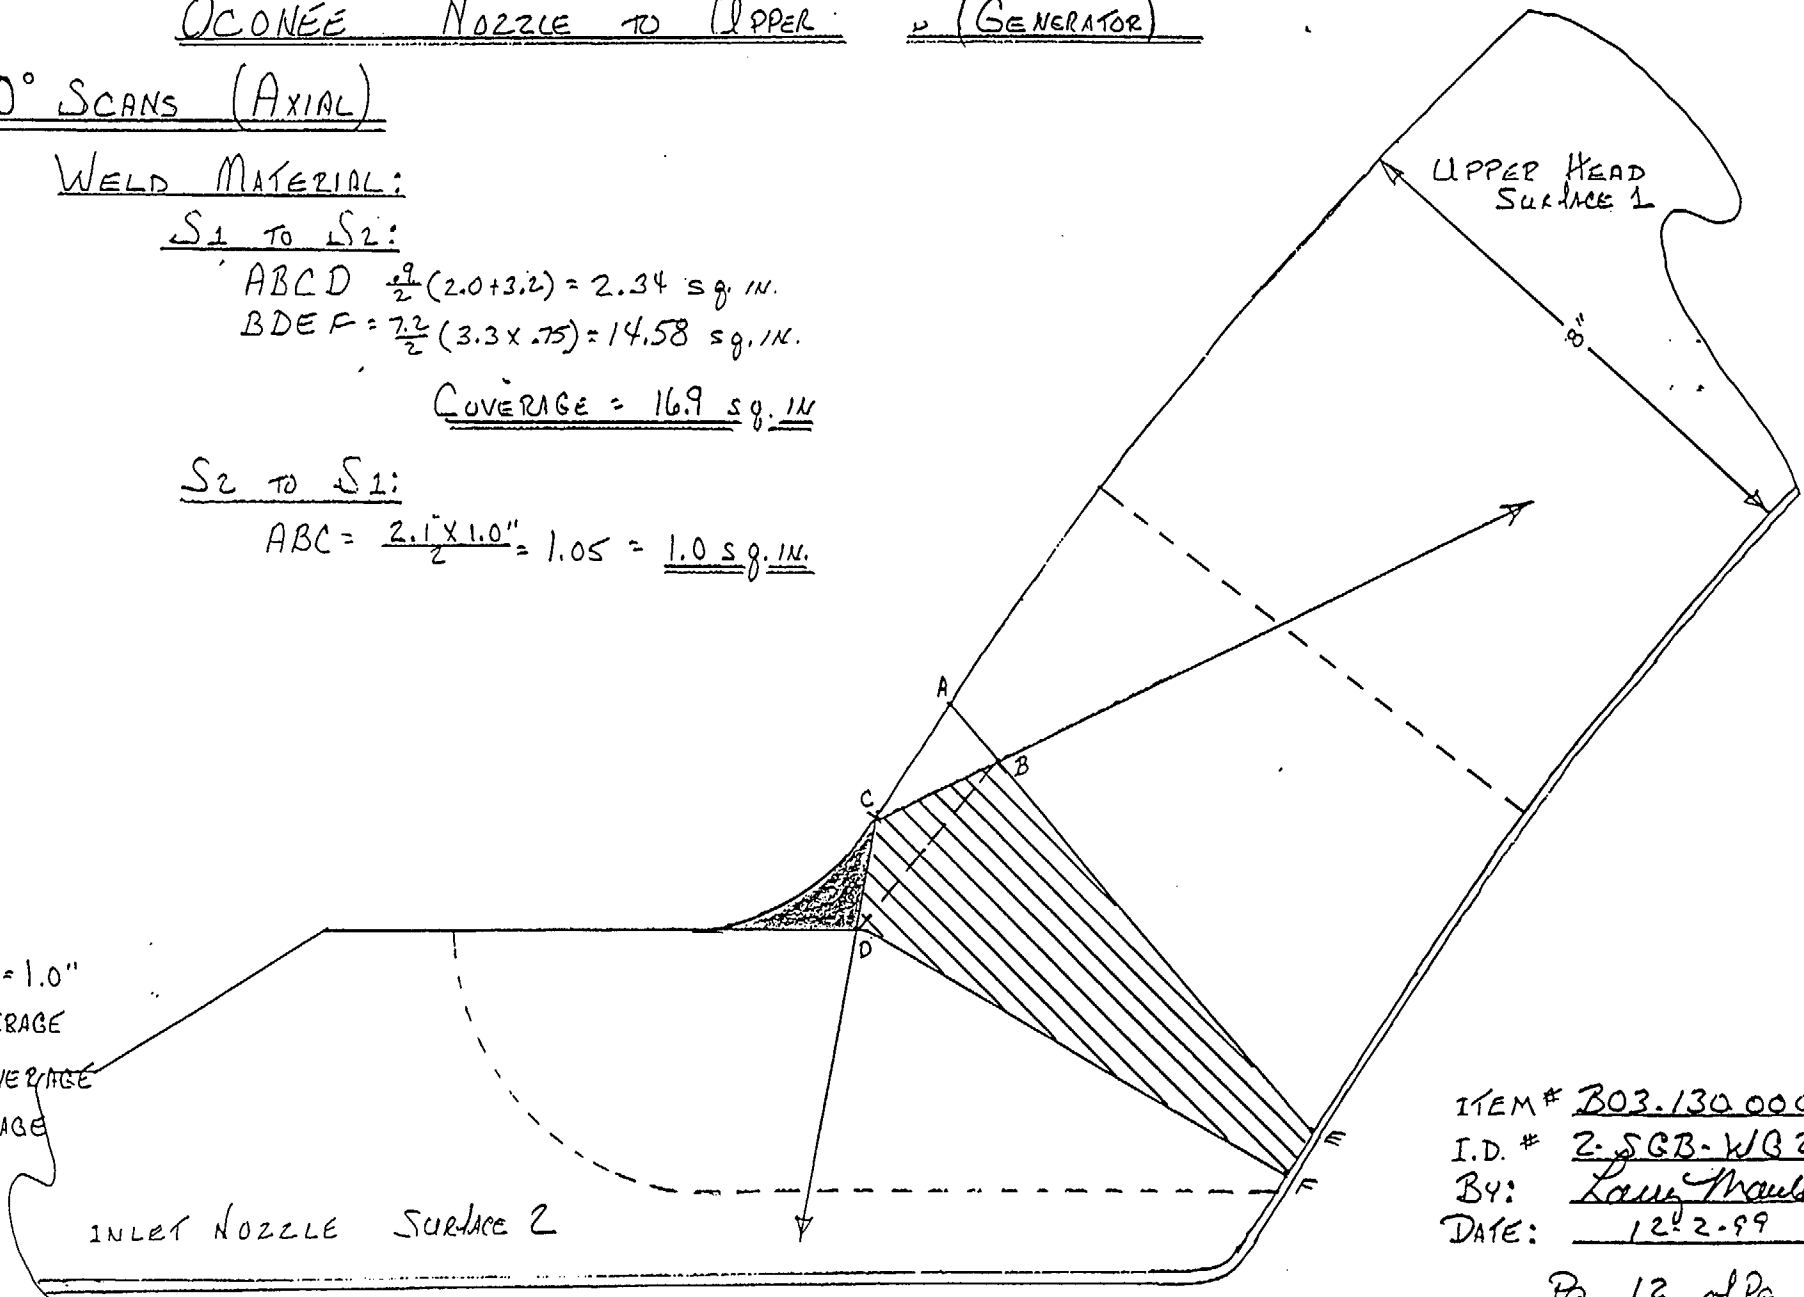 OCONEE NOZZLE TO UPPER (GENERATOR)
0° SCANS (AXIAL)
WELD MATERIAL:
S1 TO S2:
ABCD .9/2 (2.0+3.2) = 2.34 sq. IN.
BDEF = 7.2/2 (3.3 x .75) = 14.58 sq. IN.
COVERAGE = 16.9 sq. IN
S2 TO S1:
ABC = 2.1" X 1.0"/2 = 1.05 = 1.0 sq. IN.
UPPER HEAD
SURFACE 1
8"
A
B
C
D
E
F
= 1.0"
ERAGE
VERAGE
AGE
INLET NOZZLE SURFACE 2
ITEM # B03.130.000
I.D. # 2-SGB-WG2
BY: Larry
DATE: 12-2-99
Pg 12 of Pg